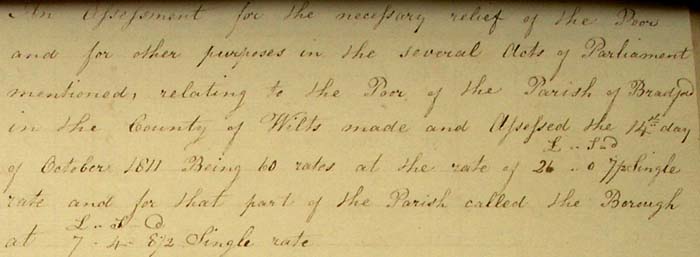 An Assessment for the necessary relief of the Poor
and for other purposes in the several Acts of Parliament
mentioned, relating to the Poor of the Parish of Bradford
in the County of Wilts made and Assessed the 14th day
£ .. S .. d
of October 1811 Being 60 rates at the rate of 26 .. 0 7½ Single
rate and for that part of the Parish called the Borough
£ - S d
at 7 - 4 - 8½ Single rate